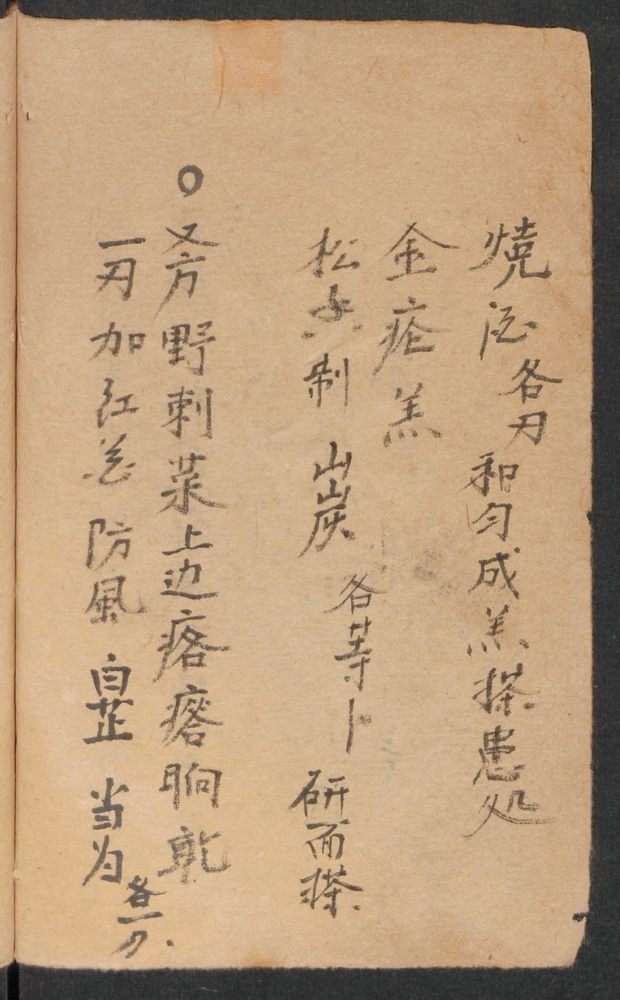 燒酒各刃和匀成羔搽患処
金疮羔
松香制 山炭 各等卜 研面搽
○又方野刺菜上边瘩瘩晌乾
一刃加红花 防風 白芷 当为各一刀